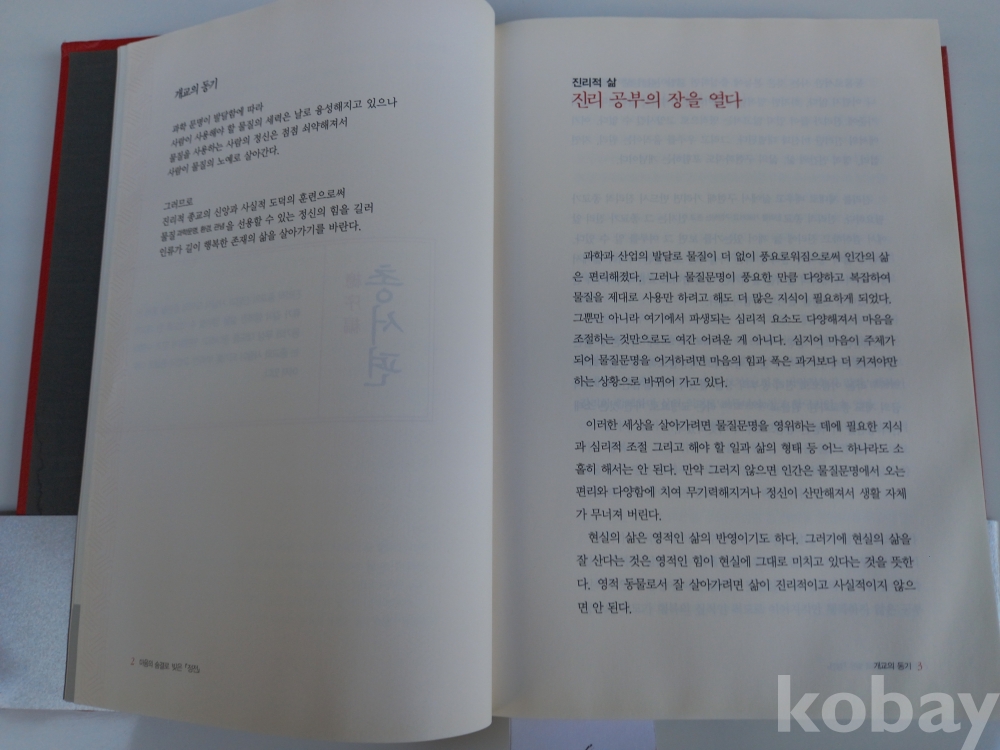 개교의 동기
과학 문명이 발달함에 따라
사람이 사용해야 할 물질의 세력은 날로 융성해지고 있으나
물질을 사용하는 사람의 정신은 점점 쇠약해져서
사람이 물질의 노예로 살아간다.
그러므로
진리적 종교의 신앙과 사실적 도덕의 훈련으로써
물질 과학문명, 환경, 관념을 선용할 수 있는 정신의 힘을 길러
인류가 길이 행복한 존재의 삶을 살아가기를 바란다.
총서편
2 마음의 숨결로 빚은 「정전」
진리적 삶
진리 공부의 장을 열다
과학과 산업의 발달로 물질이 더 없이 풍요로워짐으로써 인간의 삶
은 편리해졌다. 그러나 물질문명이 풍요한 만큼 다양하고 복잡하여
물질을 제대로 사용만 하려고 해도 더 많은 지식이 필요하게 되었다.
그뿐만 아니라 여기에서 파생되는 심리적 요소도 다양해져서 마음을
조절하는 것만으로도 여간 어려운 게 아니다. 심지어 마음이 주체가
되어 물질문명을 어거하려면 마음의 힘과 폭은 과거보다 더 커져야만
하는 상황으로 바뀌어 가고 있다.
이러한 세상을 살아가려면 물질문명을 영위하는 데에 필요한 지식
과 심리적 조절 그리고 해야 할 일과 삶의 형태 등 어느 하나라도 소
홀히 해서는 안 된다. 만약 그러지 않으면 인간은 물질문명에서 오는
편리와 다양함에 치여 무기력해지거나 정신이 산만해져서 생활 자체
가 무너져 버린다.
현실의 삶은 영적인 삶의 반영이기도 하다. 그러기에 현실의 삶을
잘 산다는 것은 영적인 힘이 현실에 그대로 미치고 있다는 것을 뜻한
다. 영적 동물로서 잘 살아가려면 삶이 진리적이고 사실적이지 않으
면 안 된다.
개교의 동기 3
kobay